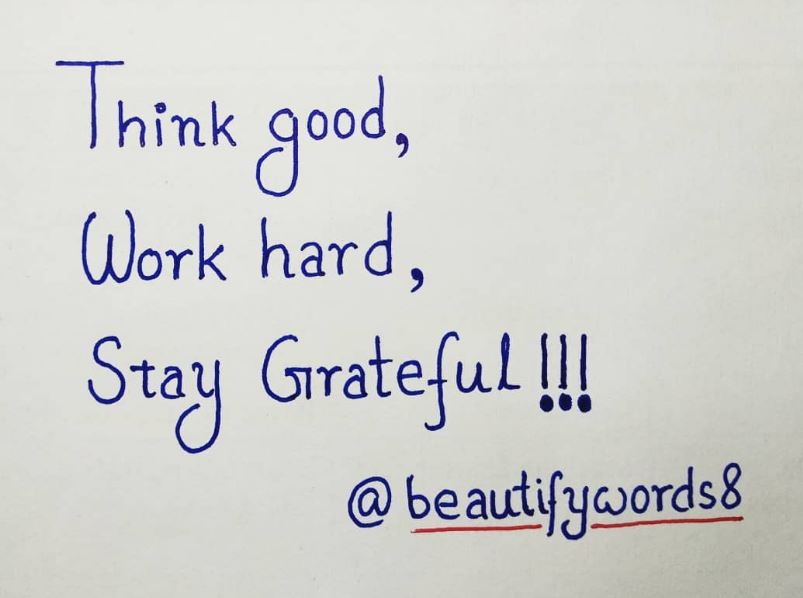 Think good,
Work hard,
Stay Grateful!!!
@beautifywords8